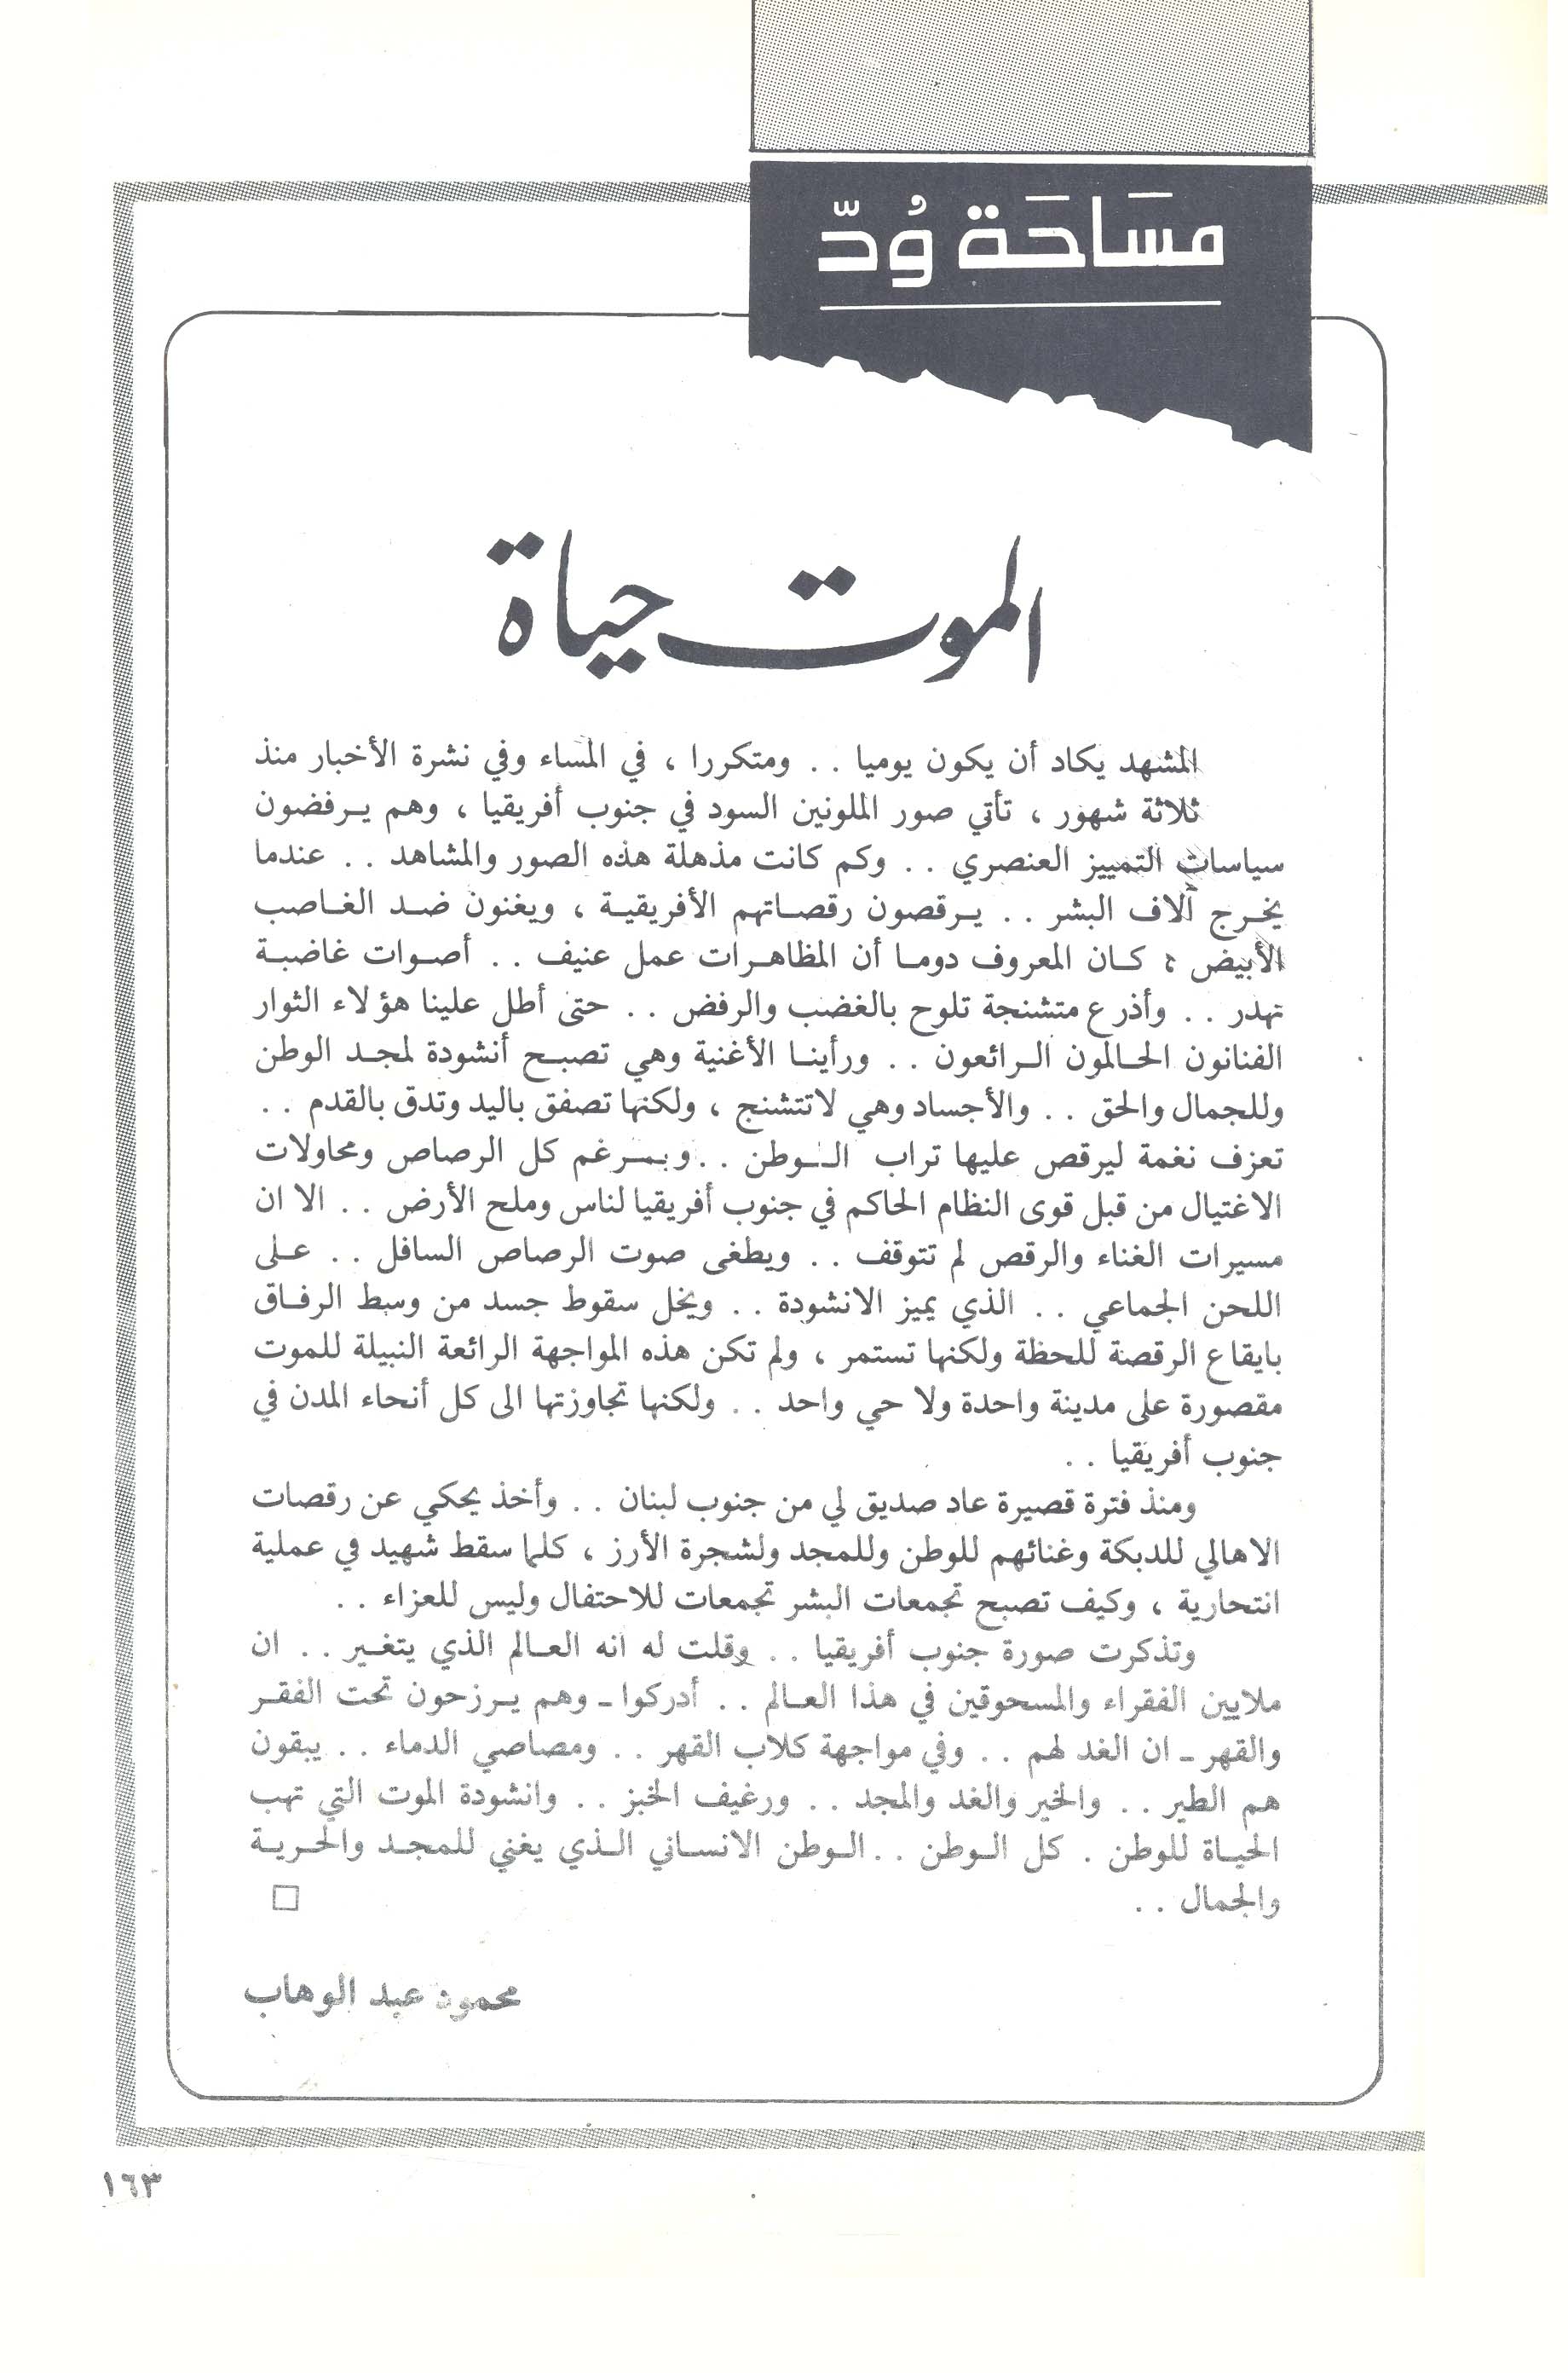 مَسَاحَة وُدّ
الموت حياة
المشهد يكاد أن يكون يوميا . . ومتكررا ، في المساء وفي نشرة الأخبار منذ
ثلاثة شهور ، تأتي صور الملونين السود في جنوب أفريقيا ، وهم يـرفضون
سياسات التمييز العنصري . . وكم كانت مذهلة هذه الصور والمشاهد . . عندما
يخـرج آلاف البشر . . يـرقصون رقصـاتهم الأفريقيـة ، ويغنون ضـد الغـاصب
الأبيض ؛ كـان المعروف دومـا أن المظاهـرات عمل عنيف . . أصـوات غاضبـة
تهدر . . وأذرع متشنجة تلوح بالغضب والرفض . . حتى أطل علينا هؤلاء الثوار
الفنانون الحـالمون الـرائعون . . ورأينـا الأغنية وهي تصبـح أنشودة لمجـد الوطن
وللجمال والحق . . والأجساد وهي لاتتشنج ، ولكنها تصفق باليد وتدق بالقدم . .
تعزف نغمة ليرقص عليها تراب الـوطن . . وبـرغم كل الرصاص ومحاولات
الاغتيال من قبل قوى النظام الحاكم في جنوب أفريقيا لناس وملح الأرض . . الا ان
مسيرات الغناء والرقص لم تتوقف . . ويطغى صوت الرصاص السافل . . عـلى
اللحن الجماعي . . الذي يميز الانشودة . . ويخل سقوط جسد من وسط الرفـاق
بايقاع الرقصة للحظة ولكنها تستمر ، ولم تكن هذه المواجهة الرائعة النبيلة للموت
مقصورة على مدينة واحدة ولا حي واحد . . ولكنها تجاوزتها الى كل أنحاء المدن في
جنوب أفريقيا . .
ومنذ فترة قصيرة عاد صديق لي من جنوب لبنان . . وأخذ يحكي عن رقصات
الاهالي للدبكة وغنائهم للوطن وللمجد ولشجرة الأرز ، كلما سقط شهيد في عملية
انتحارية ، وكيف تصبح تجمعات البشر تجمعات للاحتفال وليس للعزاء . .
وتذكرت صورة جنوب أفريقيا . . وقلت له انه العـالم الذي يتغـير . . ان
ملايين الفقراء والمسحوقين في هذا العـالم . . أدركوا ـ وهم يـرزحون تحت الفقـر
والقهر ـ ان الغد لهم . . وفي مواجهة كلاب القهر . . ومصاصي الدماء . . يبقون
هم الطير . . والخير والغد والمجد . . ورغيف الخبز . . وانشودة الموت التي تهب
الحيـاة للوطن . كل الـوطن . . الـوطن الانسـاني الـذي يغني للمجـد والحـريـة
والجمال . .
محمود عبد الوهاب
١٦٣